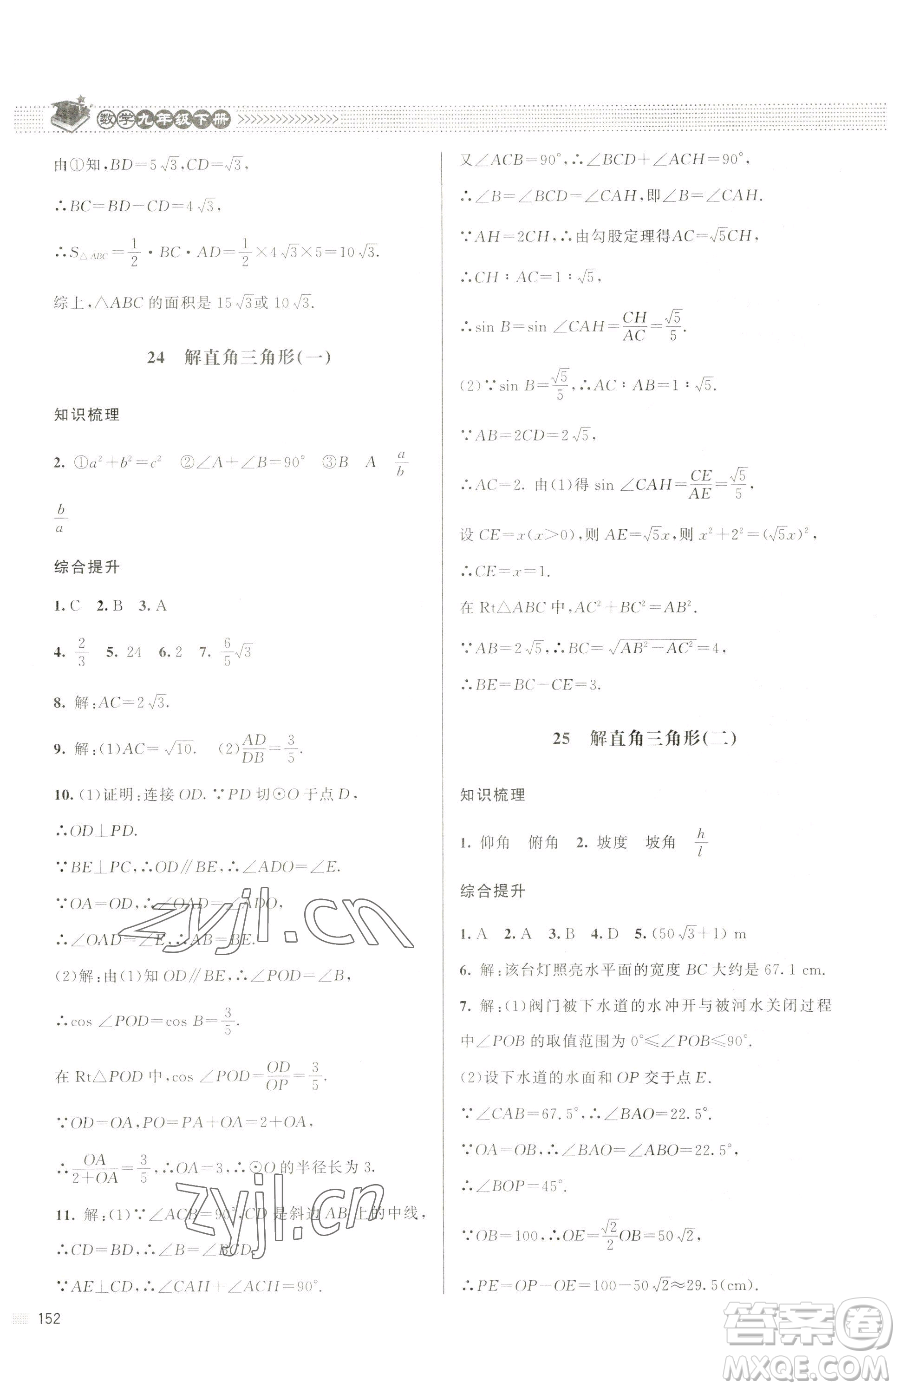 数学九年级下册
由①知,BD=5√3,CD=√3.
∴BC=BD-CD=4√3.
∴S△ABC=1/2·BC·AD=1/2×4√3×5=10√3.
综上,△ABC的面积是15√3或10√3.
24 解直角三角形(一)
知识梳理
2. ①a²+b²=c² ②∠A+∠B=90° ③B A a/b
b/a
综合提升
1. C 2. B 3. A
4. 2/3 5. 24 6. 2 7. 6/5√3
8. 解:AC=2√3.
9. 解:(1)AC=√10. (2)AD/DB=3/5.
10. (1)证明:连接OD.∵PD切⊙O于点D,
∴OD⊥PD.
∵BE⊥PC,∴OD∥BE,∴∠ADO=∠E.
∵OA=OD,∴∠OAD=∠ADO,
∴∠OAD=∠E,∴AB=BE.
(2)解:由(1)知OD∥BE,∴∠POD=∠B,
∴cos∠POD=cos B=3/5.
在Rt△POD中,cos∠POD=OD/OP=3/5.
∵OD=OA,PO=PA+OA=2+OA,
∴OA/2+OA=3/5,∴OA=3,∴⊙O的半径长为3.
11. 解:(1)∵∠ACB=90°,CD是斜边AB上的中线,
∴CD=BD,∴∠B=∠BCD.
∵AE⊥CD,∴∠CAH+∠ACH=90°.
152
又∠ACB=90°,∴∠BCD+∠ACH=90°,
∴∠B=∠BCD=∠CAH,即∠B=∠CAH.
∵AH=2CH,∴由勾股定理得AC=√5CH,
∴CH∶AC=1∶√5,
∴sin B=sin∠CAH=CH/AC=√5/5.
(2)∵sin B=√5/5,∴AC∶AB=1∶√5.
∵AB=2CD=2√5,
∴AC=2. 由(1)得sin∠CAH=CE/AE=√5/5,
设CE=x(x>0),则AE=√5x,则x²+2²=(√5x)²,
∴CE=x=1.
在Rt△ABC中,AC²+BC²=AB².
∵AB=2√5,∴BC=√AB²-AC²=4,
∴BE=BC-CE=3.
25 解直角三角形(二)
知识梳理
1. 仰角 俯角 2. 坡度 坡角 h/l
综合提升
1. A 2. A 3. B 4. D 5. (50√3+1) m
6. 解:该台灯照亮水平面的宽度BC大约是67.1 cm.
7. 解:(1)阀门被下水道的水冲开与被河水关闭过程
中∠POB的取值范围为0°≤∠POB≤90°.
(2)设下水道的水面和OP交于点E.
∵∠CAB=67.5°,∴∠BAO=22.5°.
∵OA=OB,∴∠BAO=∠ABO=22.5°,
∴∠BOP=45°.
∵OB=100,∴OE=√2/2OB=50√2,
∴PE=OP-OE=100-50√2≈29.5(cm).
zyjl.cn
zyjl.cn
答案圈
MXQE.COM